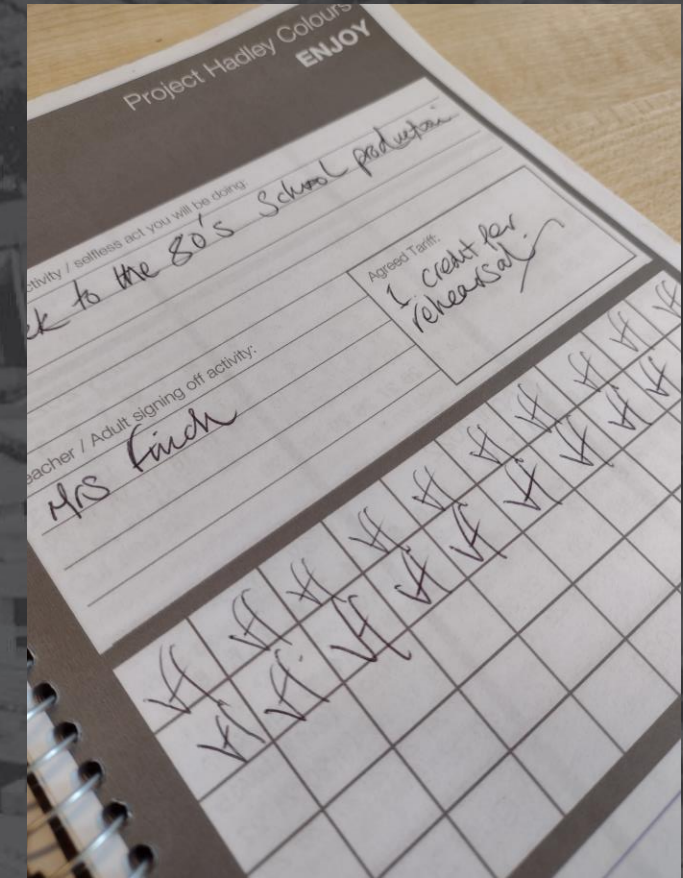 Project Hadley Colours
ENJOY
ctivity / selfless act you will be doing:
ck to the 80's School production
Agreed Tariff:
1 credit per
rehearsal.
eacher / Adult signing off activity:
Mrs Finch